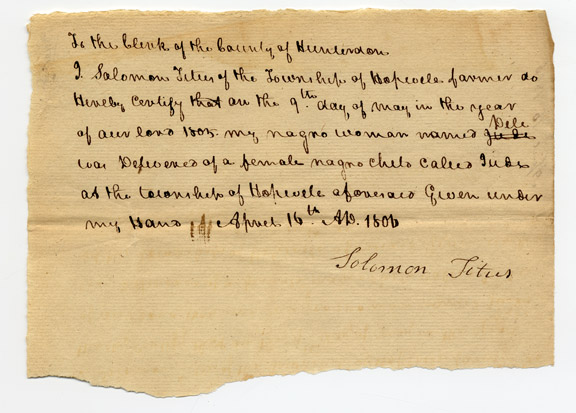 To the Clerk of the County of Hunterdon
I. Solomon Titus of the Township of Hopwele farmer do
Hereby certify that on the 9th day of may in the year
of our lord 1805. my nagro woman named Dele
was Delivered of a female nagro child called Jude
at the township of Hopwele aforesaid Given under
my Hand Aprel 16th AD. 1806
Solomon Titus